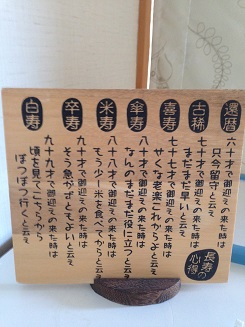 長寿の
心得
還暦
六十才で御迎えの来た時は
只今留守と云え
古稀
七十才で御迎えの来た時は
まだまだ早いと云え
喜寿
七十七才で御迎えの来た時は
せくな老楽これからよと云え
傘寿
八十才で御迎えの来た時は
なんのまだまだ役に立つと云え
米寿
八十八才で御迎えの来た時は
もう少し米を食べてからと云え
卒寿
九十才で御迎えの来た時は
そう急がずともよいと云え
白寿
九十九才で御迎えの来た時は
頃を見てこちらから
ぼつぼつ行くと云え